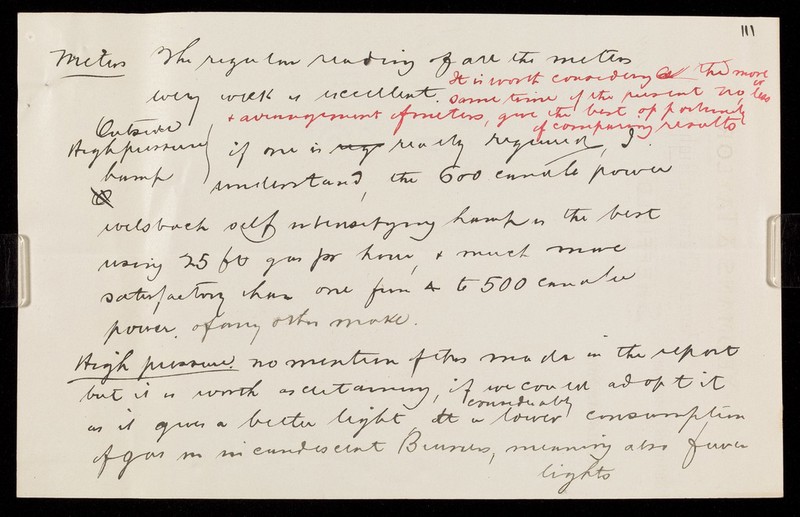 111
Meters The regular reading of all the meters
every week is excellent. It is worth considering the more or less
same time if the present no,
& arrangement of meters, give the best opportunity
of comparing results
Outside
High pressure
Lamp
if one is really required, I
understand, the 600 candle power
welsbach self intensifying Lamp is the best
using 25 ft gas pr hour, & much more
satisfactory than one from 4 to 500 candle
power of any other make.
High pressure. no mention of this made in the report
but it is worth ascertaining, if we could adopt it
as it gives a better light at a considerably lower consumption
of gas in incandescent Burners, meaning also fewer
lights